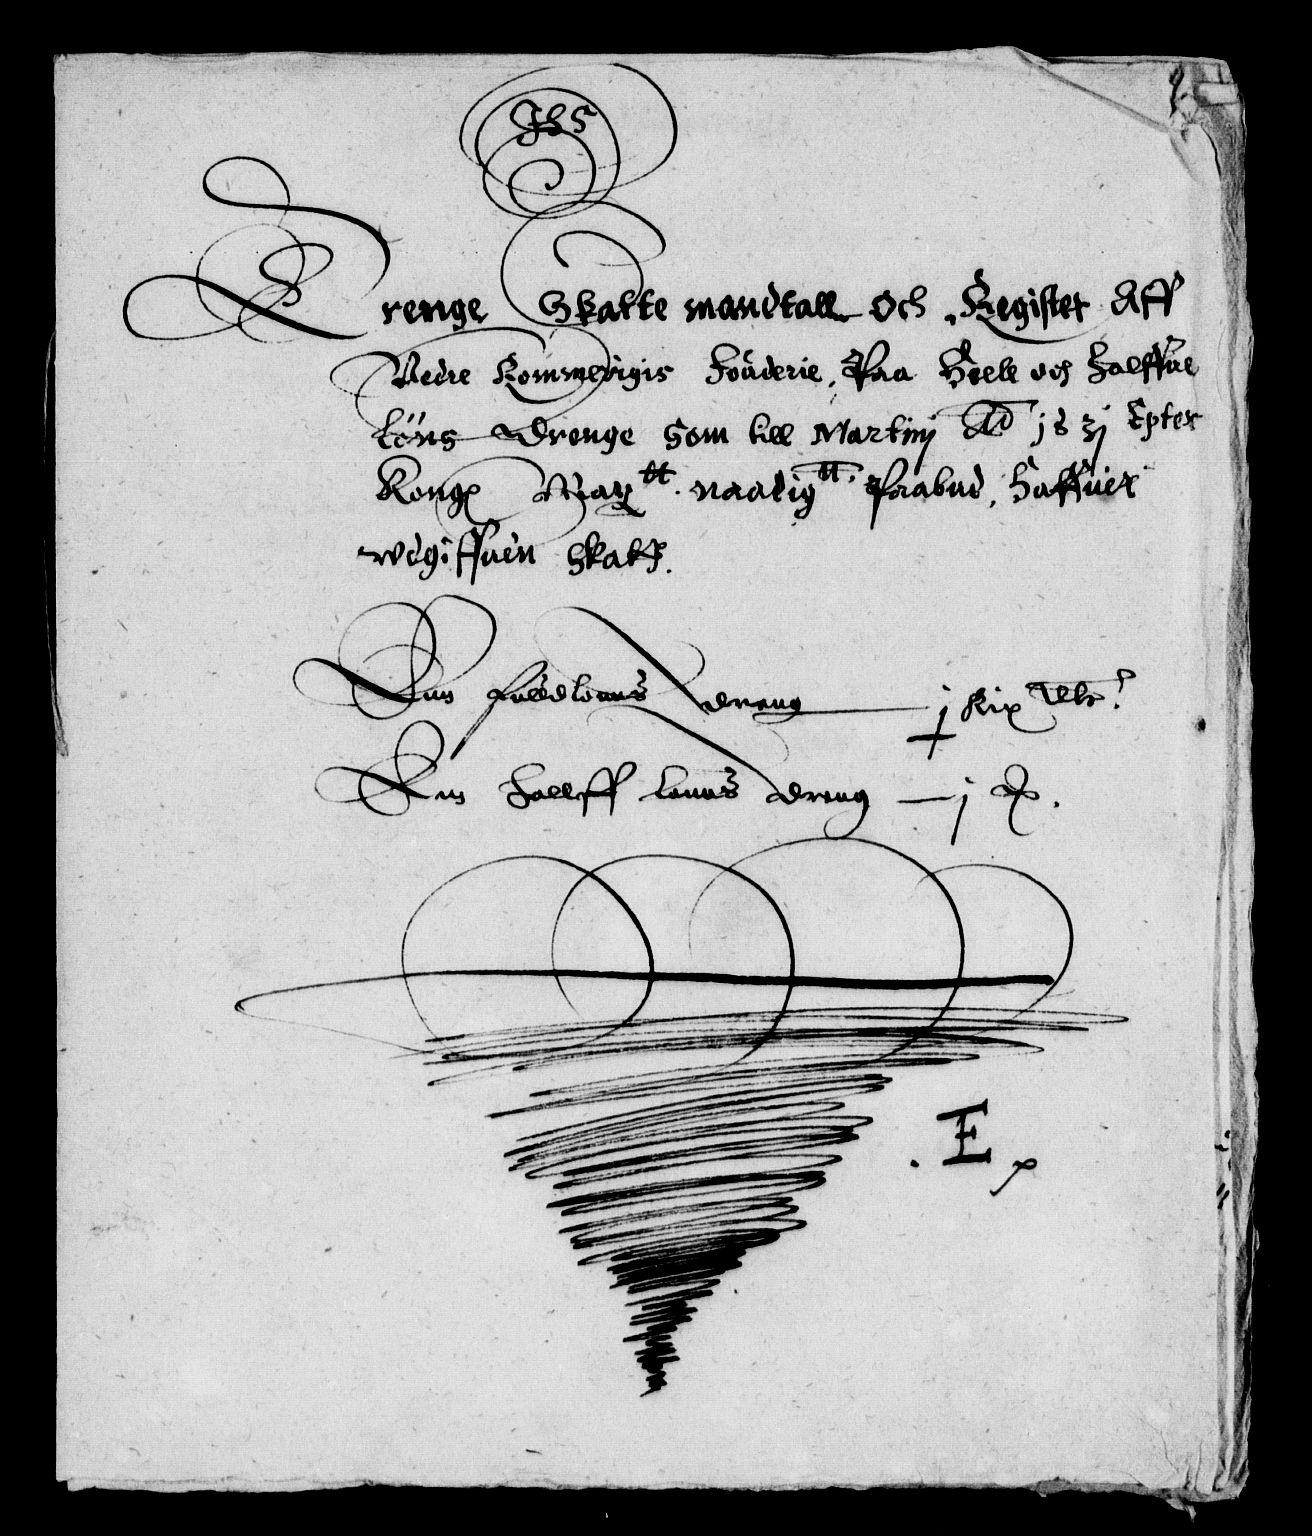 Jhs
Drenge Skatte mandtall Och Register Aff
Nedre Rommerigis Fouderie, Paa Heele och Halffue
löns Drenge Som till Martinj Ao js 3j Epter
Kongl Maytt. naadigtt. Paabud, Haffuer
wdgiffuen Skatt.
Enn fuldlöuns dreng — j Rix dlr.
En Hallff lönns dreng — j
. E